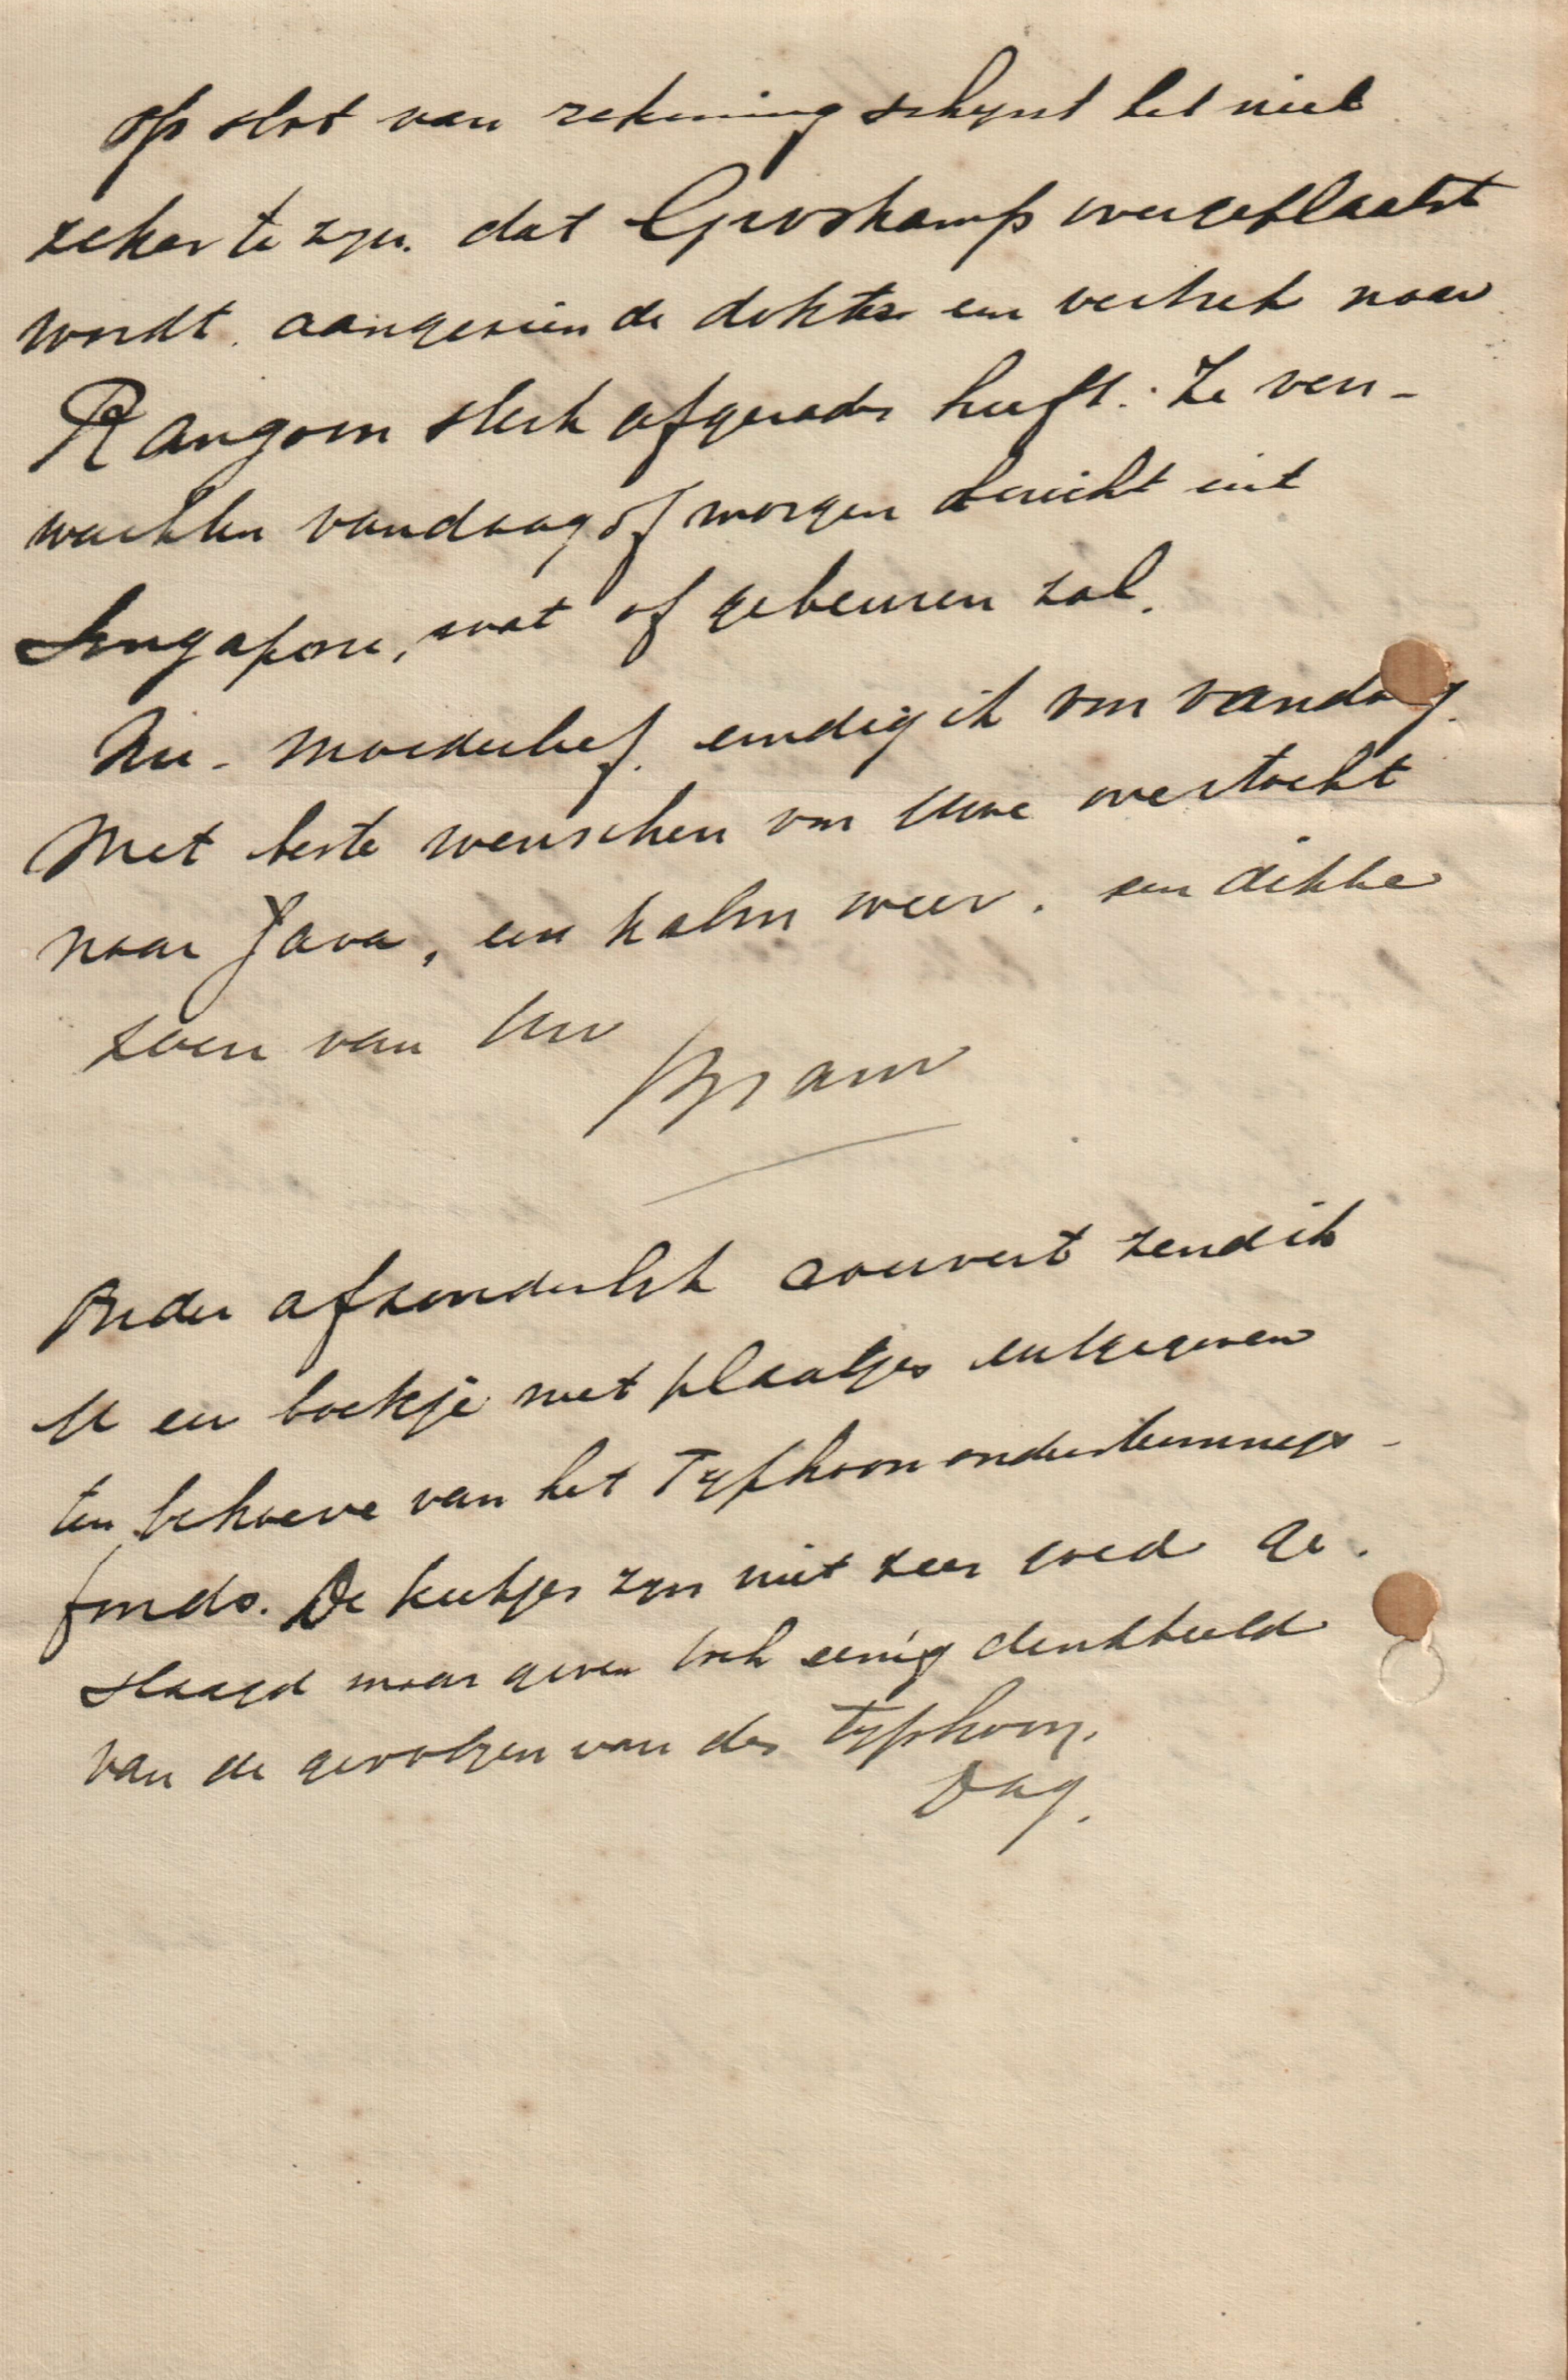 Op slot van rekening schynt het niet
zeker te zyn. dat Groskamp overgeplaatst
wordt. aangezien de dokter een vertrek naar
Rangoon sterk afgeraden heeft. Ze ver-
wachten vandaag of morgen bericht uit
Singapore, wat of gebeuren zal.
Nu - moederlief. eindig ik voor vandaag.
Met beste wenschen voor Uwe overtocht
naar Java, een kalm weer. een dikke
zoen van Uw
Bram
Onder afzonderlyk couvert zend ik
U een boekje met plaatjes uitgegeven
ten behoeve van het Typhoon ondersteunings-
fonds. De kiekjes zyn niet zeer goed ge-
slaagd maar geven toch eenig denkbeeld
van de gevolgen van den typhoon.
Dag.